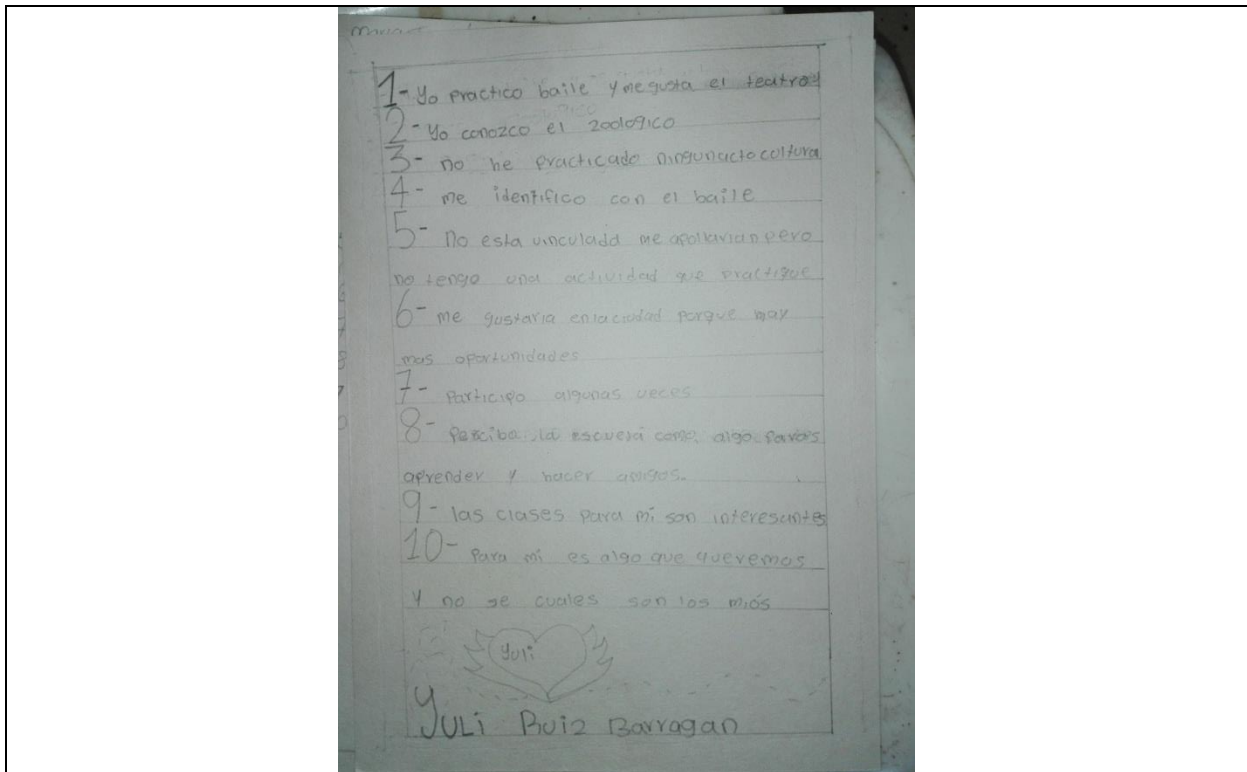 1- Yo practico baile y me gusta el teatro y
2- Yo conozco el zoologico
3- no he practicado ningun acto cultura
4- me identifico con el baile
5- No esta vinculada me apollarian pero
no tengo una actividad que practique
6- me gustaria en la ciudad porque hay
mas oportunidades
7- Participo algunas veces
8- Percibo la escuela como algo
aprender y hacer amigos.
9- las clases para mi son interesantes
10- Para mi es algo que queremos
y no se cuales son los miós
Yuli
Yuli Ruiz Barragan